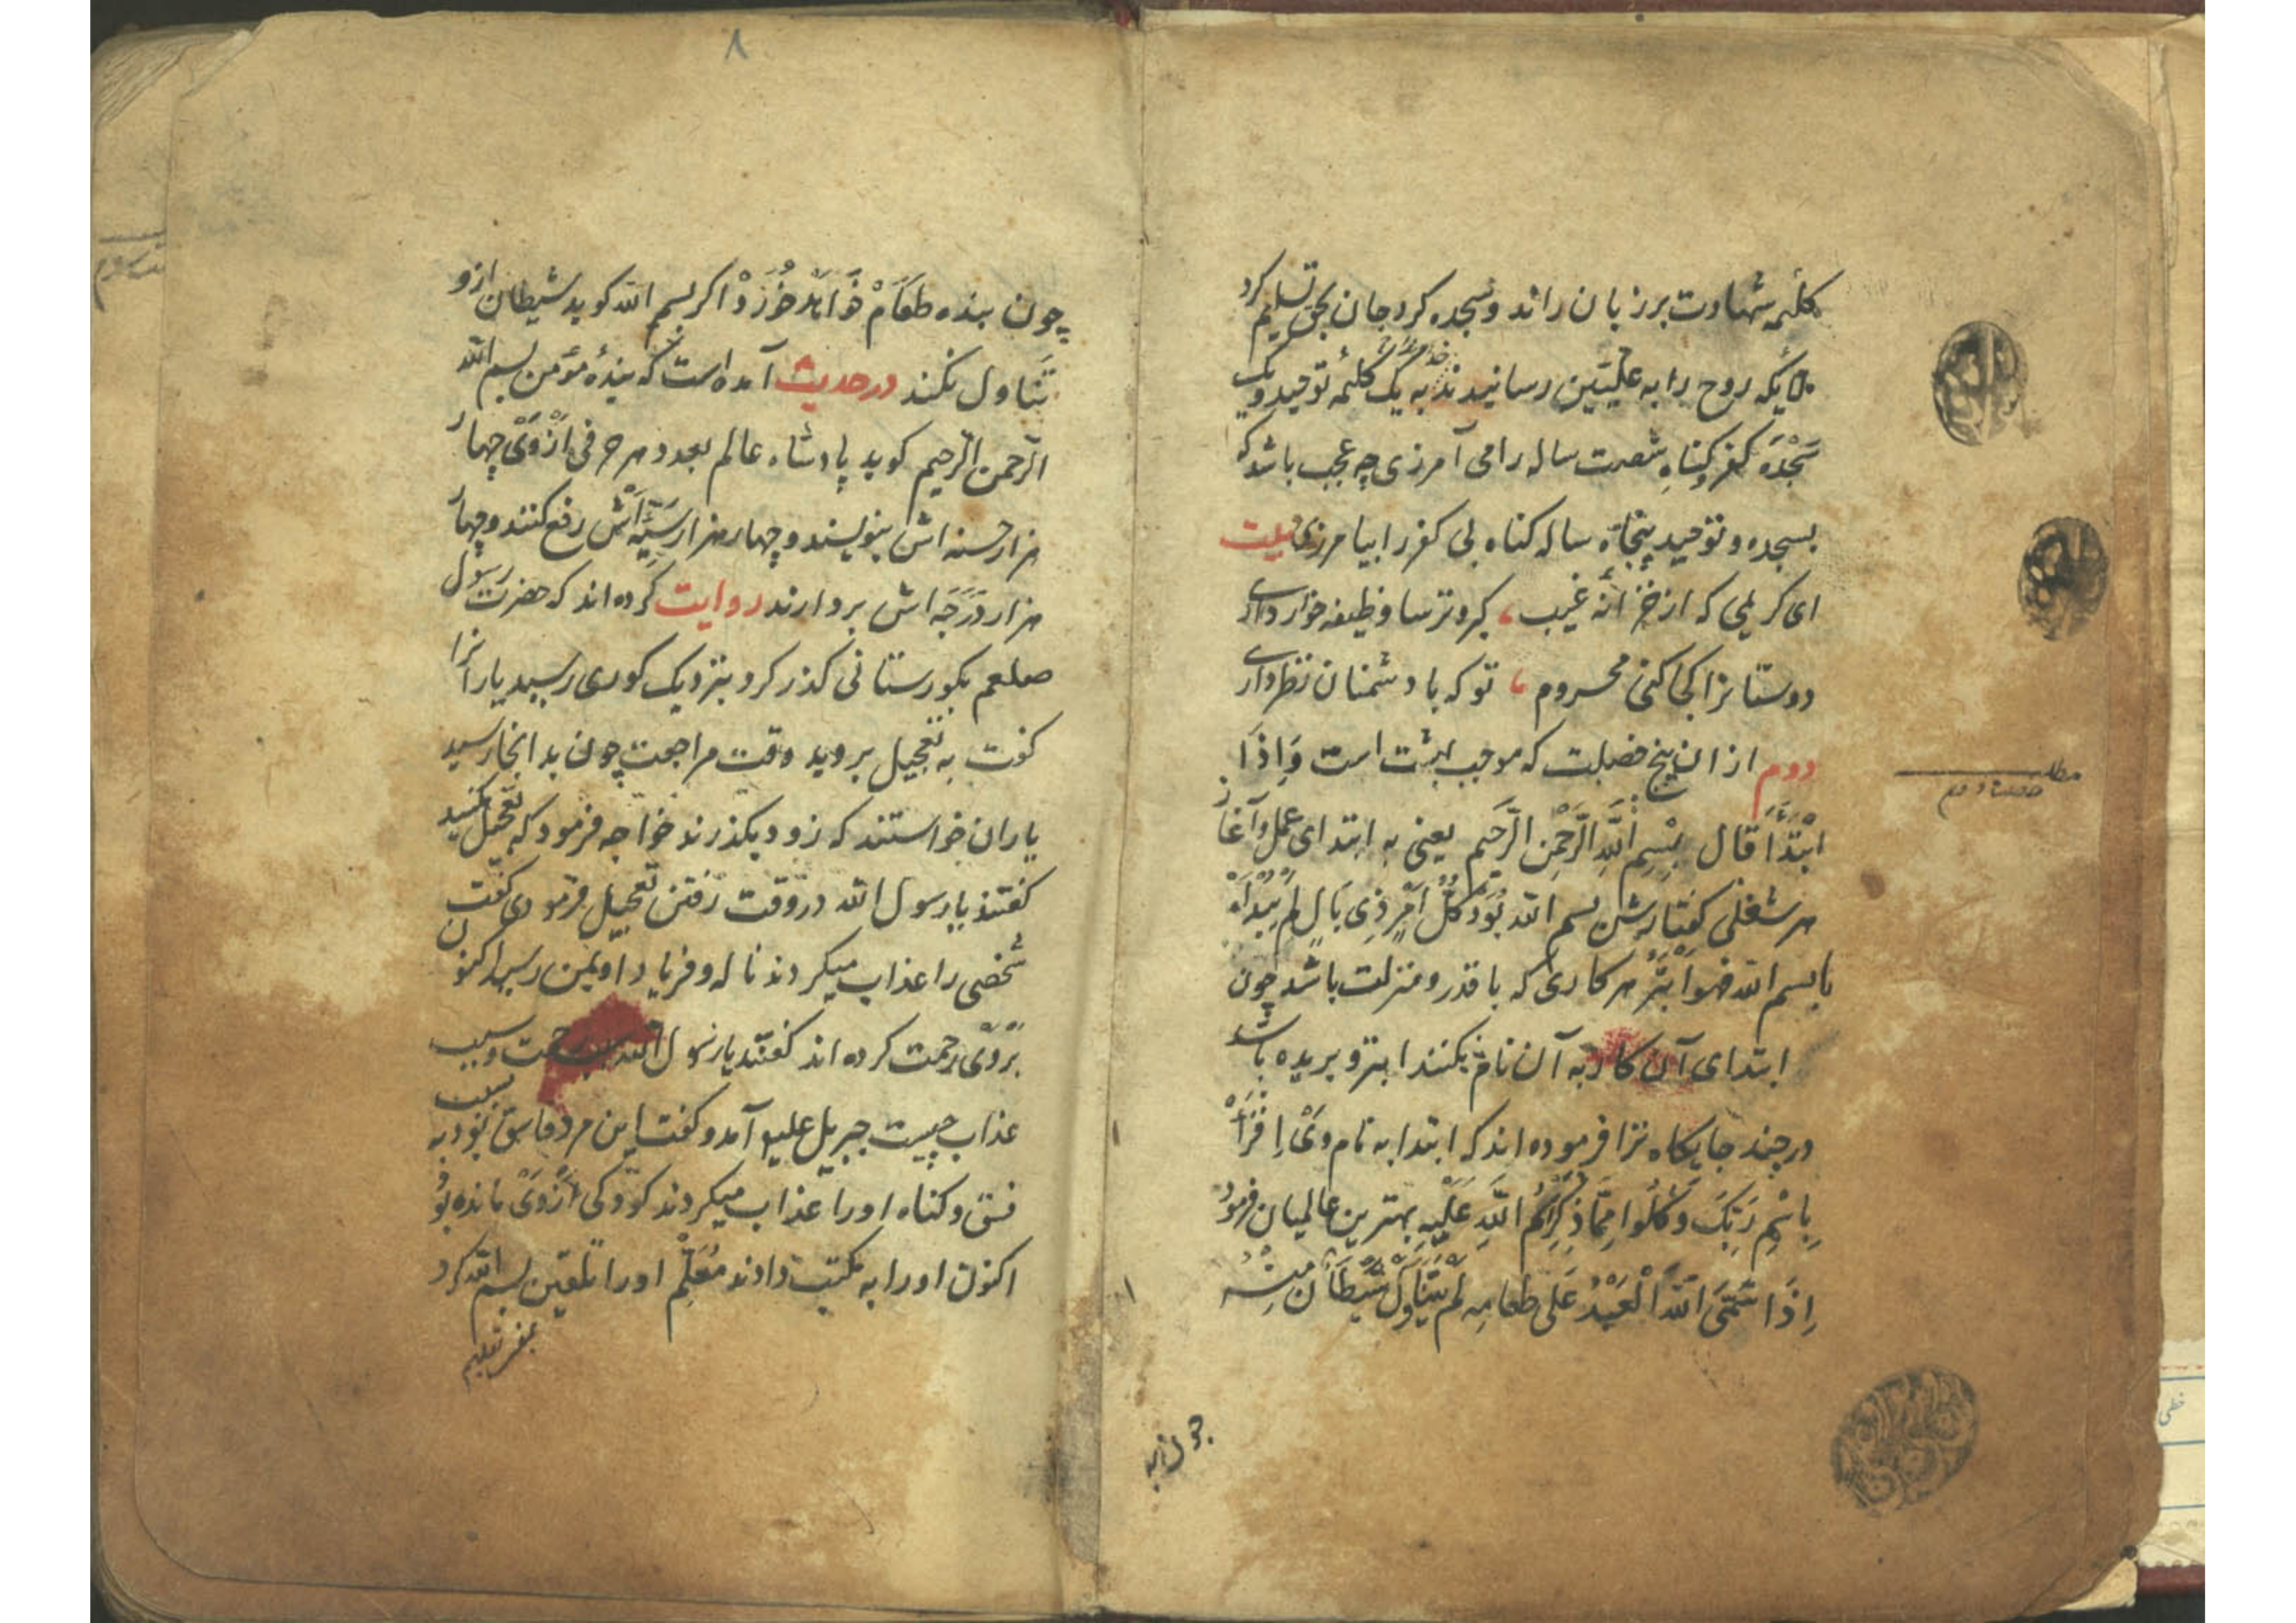 کلمٔه شهادت بر زبان راند و سجده کرد جان بحق تسلیم کرد
ملایکه روح را به علیّین رسانیدند خداوندا به یک کلمٔه توحید و یک
سَجْدَه کفر و کناهِ شصت ساله را می آمرزی چه عجب باشد که
بسجده و توحید پنجاه ساله کناه بی کفر را بیامرزی بیت
ای کریمی که از خزانٔه غیب ، کبر و ترسا وظیفه خوار داری
دوستانرا کجا کنی محروم ، تو که با دشمنان نظر داری
دوم از ان پنج خصلت که موجب بهشت است وَاِذَا
ابْتَدَأَ قَالَ بِسْمِ اللَّهِ الرَّحْمٰنِ الرَّحِیم یعنی به ابتدای عمل و آغاز
هر شغلی کفتارش بسم الله بُوَدْ کُلُّ اَمْرٍ ذِی بَالٍ لَمْ یُبْدَأْ
بابسم الله فهوَ اَبْتَرُ هر کاری که با قدر و منزلت باشد چون
ابتدای آن کار به آن نام نکنند ابتر و بریده باشد
در چند جایکاه ترا فرموده اند که ابتدا به نام وَیْ اِقْرَأْ
بِاسْمِ رَبِّکَ وَکُلُوا مِمَّا ذُکِرَ اسْمُ اللَّهِ عَلَیْهِ بهترین عالمیان فرمود
اِذَا سَمَّیَ اللَّهَ الْعَبْدُ عَلَی طعامِه لَمْ یَتَنَاوَلْ شَیْطَان مِنْهُ
مطلب
خصلت دوم
چون بنده
۸
چون بنده طَعَامْ خَواهَدْ خُورَدْ اکر بسم الله کوید شیطان ازو
تَنَاول نکند در حدیث آمده است که بندٔه مؤمن بسم الله
الرّحمن الرّحیم کوید پادشاه عالم بعدد هر حرفی اَزْوَیْ چهار
هزار حسنه اش بنویسند و چهار هزار سَیِّئَه اَش رفع کنند و چهار
هزار دَرَجَه اش بردارند روایت کرده اند که حضرت رسول
صلعم بکورستانی کذر کرد بنزدیک کوری رسید یارانرا
کفت به تعجیل بروید وقت مراجعت چون بدانجا رسید
یاران خواستند که زود بکذرند خواجه فرمود که تعجیل مکنید
کفتند یا رسول الله در وقت رفتن تعجیل فرمودی کفت
شخصی را عذاب میکردند ناله و فریاد او بمن رسید اکنون
بَرْوَیْ رحمت کرده اند کفتند یا رسول الله سبب رحمت و سبب
عذاب چیست جبریل علیه آمد و کفت این مرد فاسق بود به سبب
فسق و کناه او را عذاب میکردند کودکی اَزْوَیْ مانده بُود
اکنون او را به مکتب دادند مُعَلِّم او را تلقین بسم الله کرد